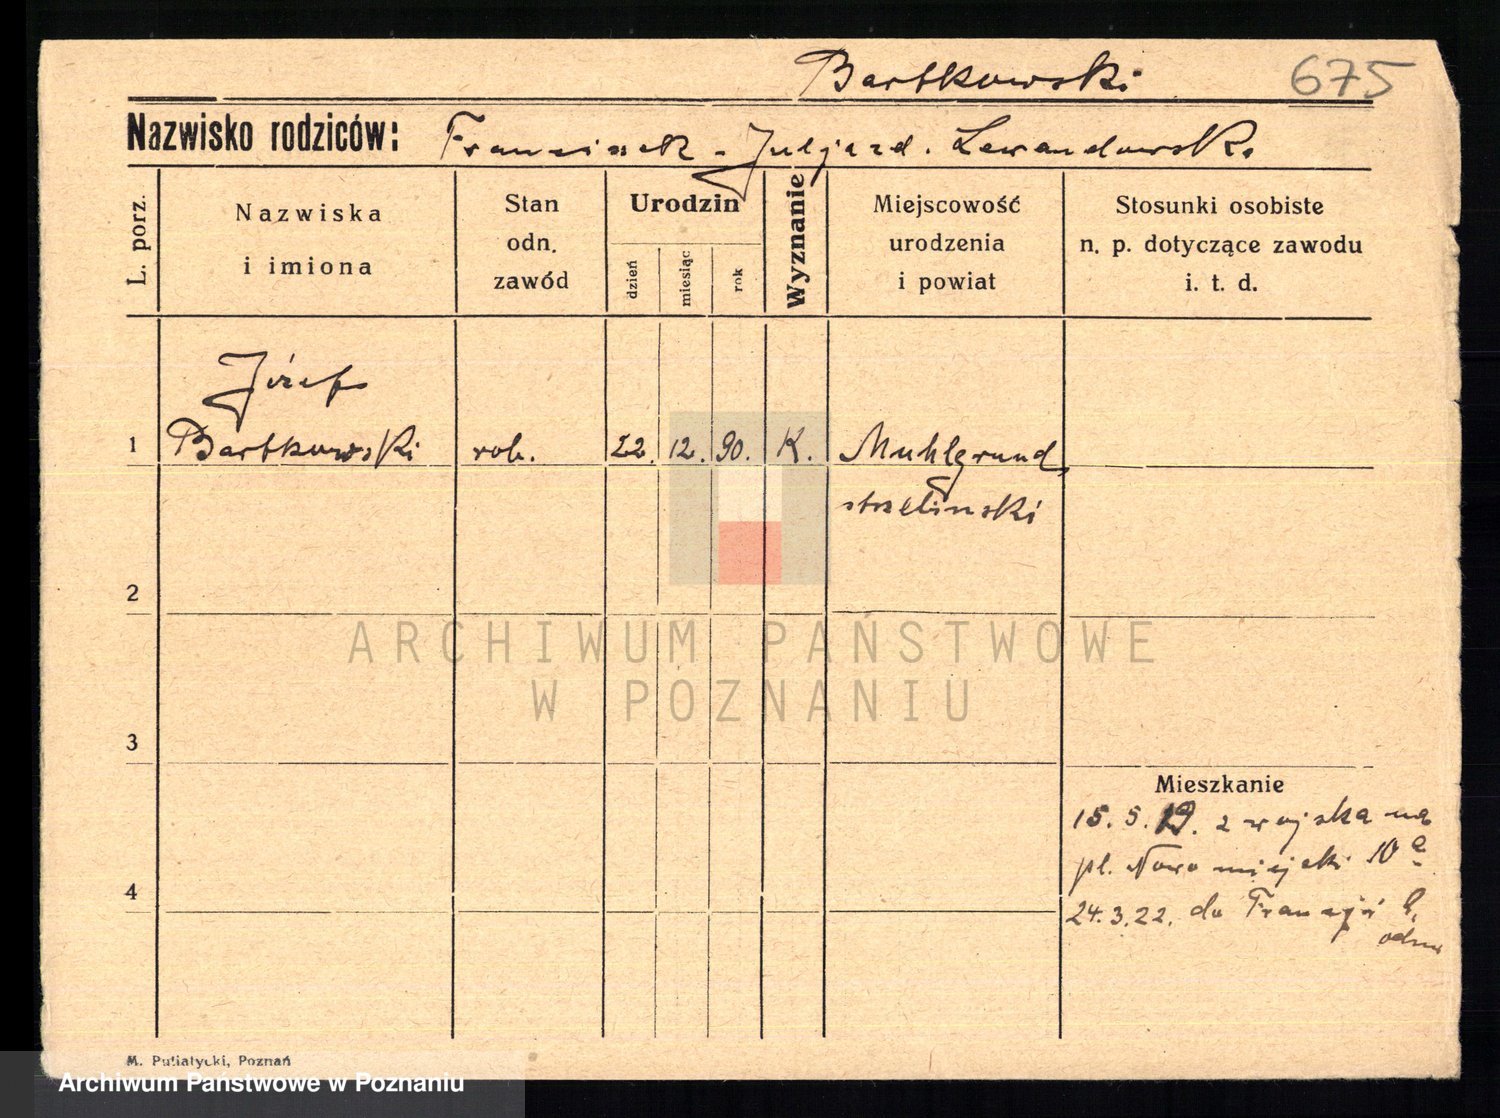 Bartkowski 675
Nazwisko rodziców: Franciszek - Lewandowska
L. porz.
Nazwiska
i imiona
Stan
odn.
zawód
Urodzin
dzień
miesiąc
rok
Wyznanie
Miejscowość
urodzenia
i powiat
Stosunki osobiste
n. p. dotyczące zawodu
i. t. d.
Józef
1 Bartkowski rob. 22. 12. 90. K. Muhlgrund
strzeliński
2
ARCHIWUM PAŃSTWOWE
W POZNANIU
3
Mieszkanie
15. 5. 19. z wojska na
pl. Nowomiejski 10 a
4
24. 3. 22. do Francji
M. Putiatycki, Poznań
Archiwum Państwowe w Poznaniu